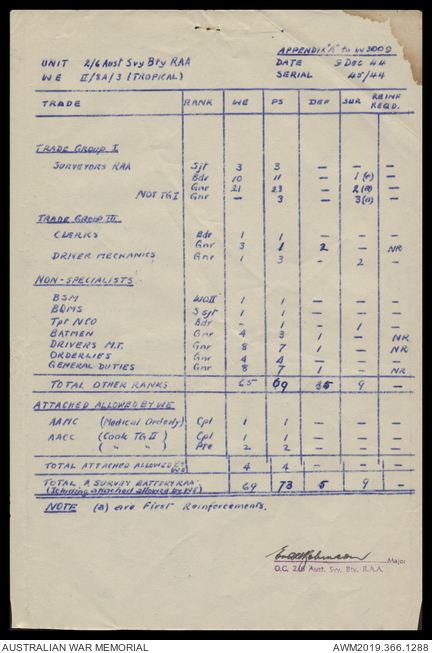 APPENDIX "A" to W3009
UNIT 2/6 Aust Svy Bty RAA DATE 8 DEC 44
WE II/8A/3 (TROPICAL) SERIAL 45/44
TRADE RANK WE PS DEF SUR REINF REQD.
TRADE GROUP I
SURVEYORS RAA Sjt 3 3 — — —
Bdr 10 11 — 1(a) —
Gnr 21 23 — 2(a) —
NOT TG I Gnr — 3 — 3(a) —
TRADE GROUP III
CLERKS Bdr 1 1 — — —
Gnr 3 1 2 — NR
DRIVER MECHANICS Gnr 1 3 — 2 —
NON-SPECIALISTS
BSM WOII 1 1 — — —
BQMS S Sjt 1 1 — — —
Tpt NCO Bdr — 1 — 1 —
BATMEN Gnr 4 3 1 — NR
DRIVERS M.T. Gnr 8 7 1 — NR
ORDERLIES Gnr 4 4 — — —
GENERAL DUTIES Gnr 8 7 1 — NR
TOTAL OTHER RANKS 65 69 5 9 —
ATTACHED ALLOWED BY WE
AAMC (Medical Orderly) Cpl 1 1 — — —
AACC (Cook TG II) Cpl 1 1 — — —
( " " ) Pte 2 2 — — —
TOTAL ATTACHED ALLOWED BY WE 4 4 — — —
TOTAL A SURVEY BATTERY RAA 69 73 5 9 —
(Including attached allowed by WE)
NOTE (a) are First Reinforcements.
Major
O.C. 2/6 Aust. Svy. Bty. R.A.A.
AUSTRALIAN WAR MEMORIAL AWM2019.366.1288